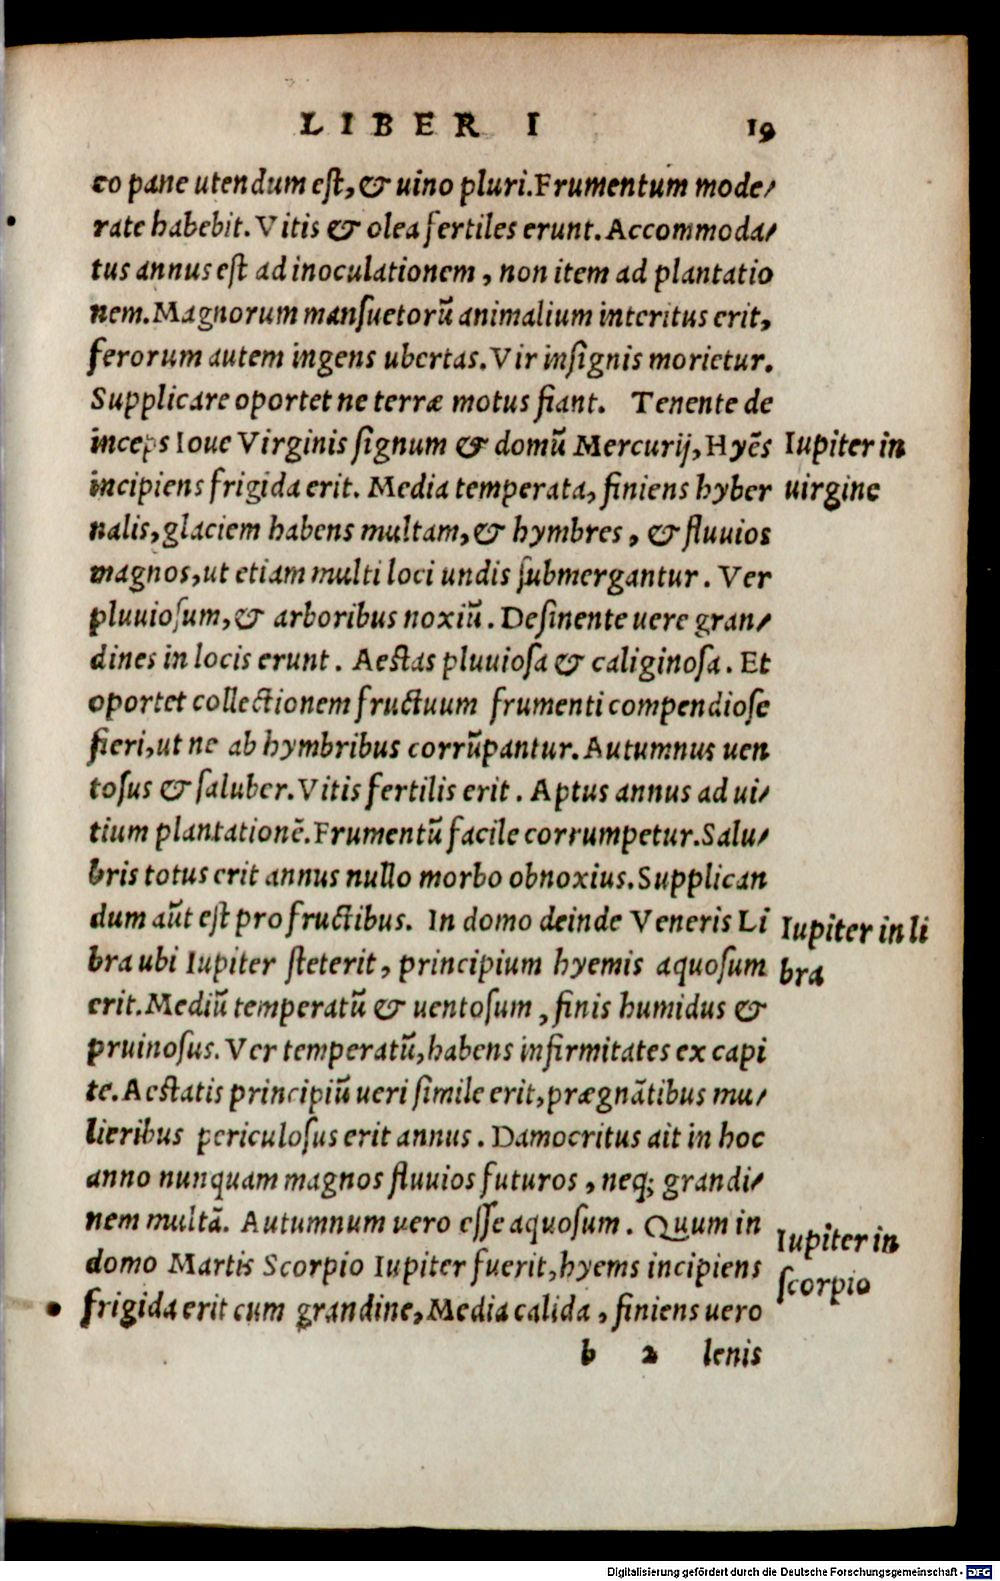 LIBER I 19
co pane utendum eſt, & uino pluri. Frumentum mode/
rate habebit. Vitis & olea fertiles erunt. Accommoda/
tus annus eſt ad inoculationem, non item ad plantatio
nem. Magnorum manſuetorũ animalium interitus erit,
ferorum autem ingens ubertas. Vir inſignis morietur.
Supplicare oportet ne terræ motus fiant. Tenente de
inceps Ioue Virginis ſignum & domũ Mercurij, Hyẽs
Iupiter in
incipiens frigida erit. Media temperata, finiens hyber
uirgine
nalis, glaciem habens multam, & hymbres, & fluuios
magnos, ut etiam multi loci undis ſubmergantur. Ver
pluuioſum, & arboribus noxiũ. Deſinente uere gran/
dines in locis erunt. Aeſtas pluuioſa & caliginoſa. Et
oportet collectionem fructuum frumenti compendioſe
fieri, ut ne ab hymbribus corrũpantur. Autumnus uen
toſus & ſaluber. Vitis fertilis erit. Aptus annus ad ui/
tium plantationẽ. Frumentũ facile corrumpetur. Salu/
bris totus erit annus nullo morbo obnoxius. Supplican
dum aũt eſt pro fructibus. In domo deinde Veneris Li
Iupiter in li
bra ubi Iupiter ſteterit, principium hyemis aquoſum
bra
erit. Mediũ temperatũ & uentoſum, finis humidus &
pruinoſus. Ver temperatũ, habens infirmitates ex capi
te. Aeſtatis principiũ ueri ſimile erit, prægnãtibus mu/
lieribus periculoſus erit annus. Damocritus ait in hoc
anno nunquam magnos fluuios futuros, neq; grandi/
nem multã. Autumnum uero eſſe aquoſum. Quum in
Iupiter in
domo Martis Scorpio Iupiter fuerit, hyems incipiens
ſcorpio
frigida erit cum grandine, Media calida, finiens uero
b 2 lenis
Digitalisierung gefördert durch die Deutsche Forschungsgemeinschaft - DFG